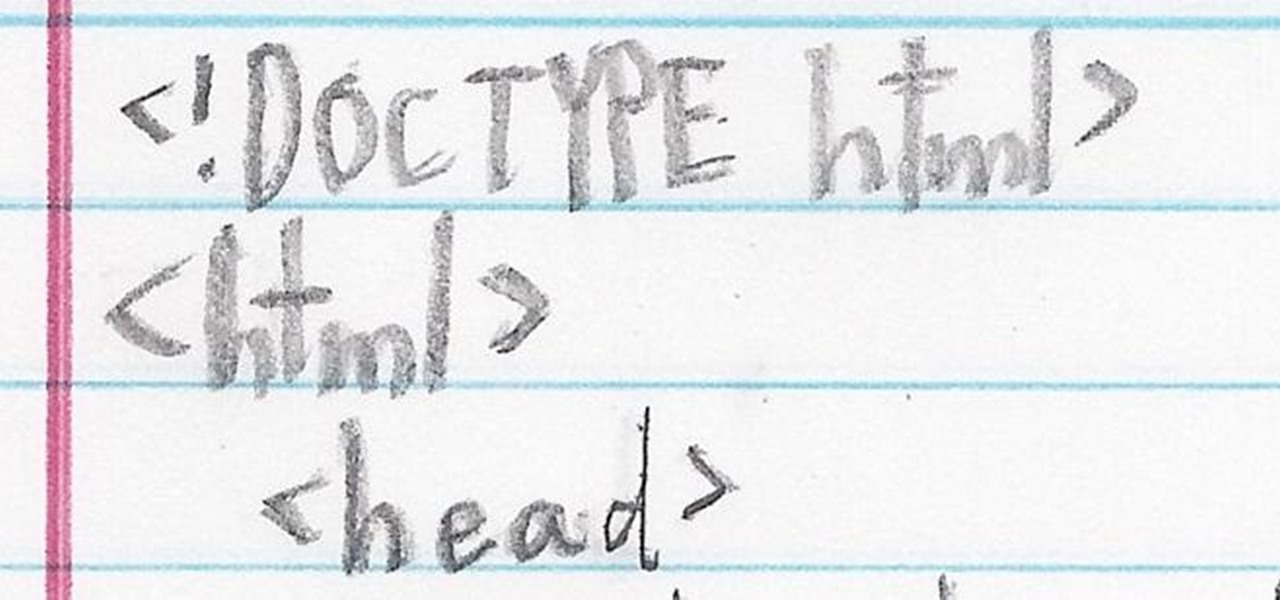 <!DOCTYPE html>
<html>
<head>